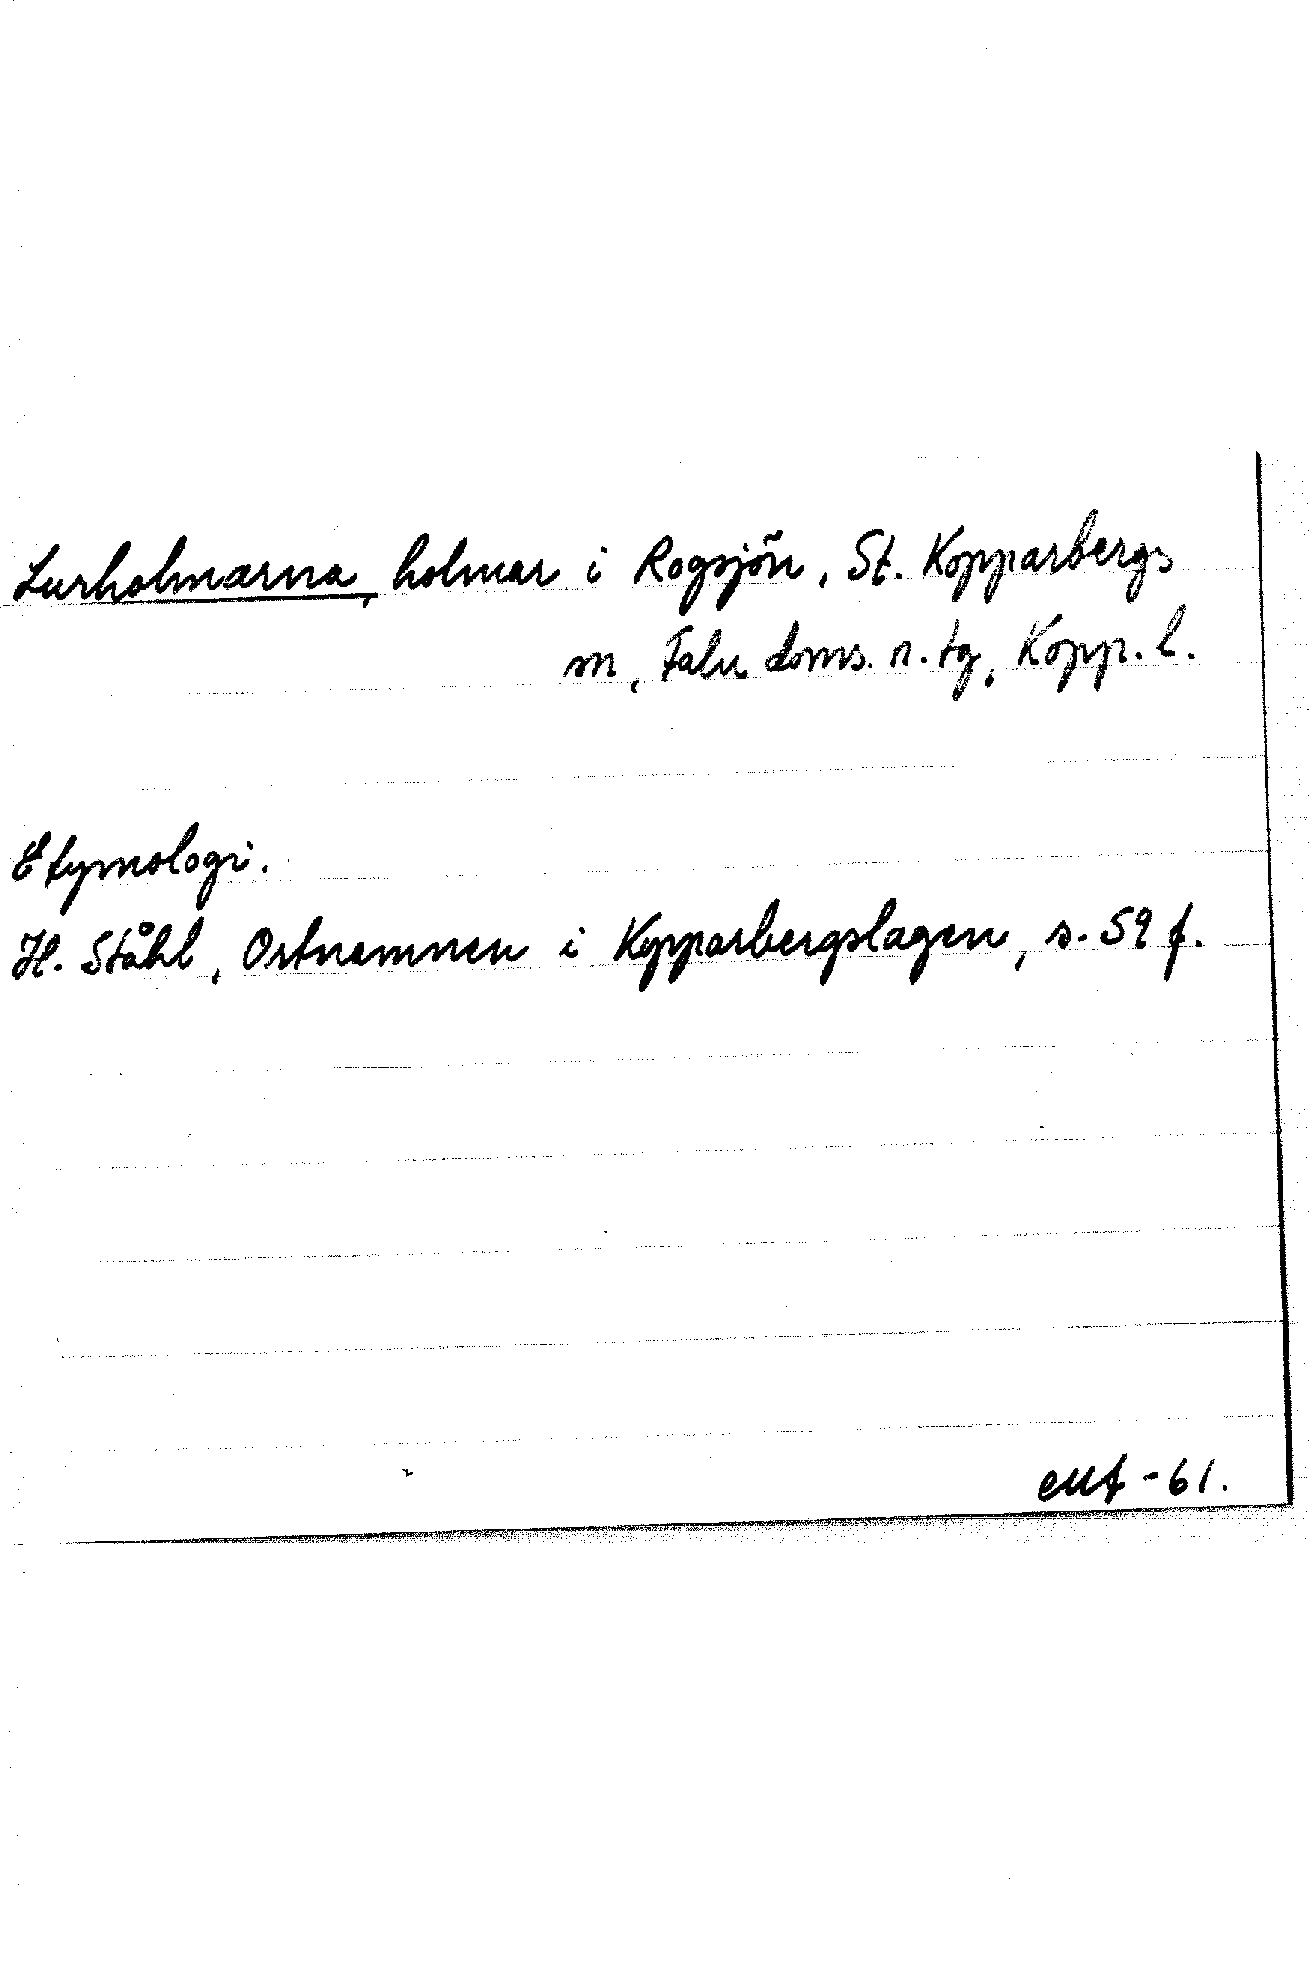 Lurholmarna, holmar i Rogsjön, St. Kopparbergs
sn, Falu doms. n. tg, Kopp. l.
Etymologi.
H. Ståhl, Ortnamnen i Kopparbergslagen, s. 59 f.
-61.